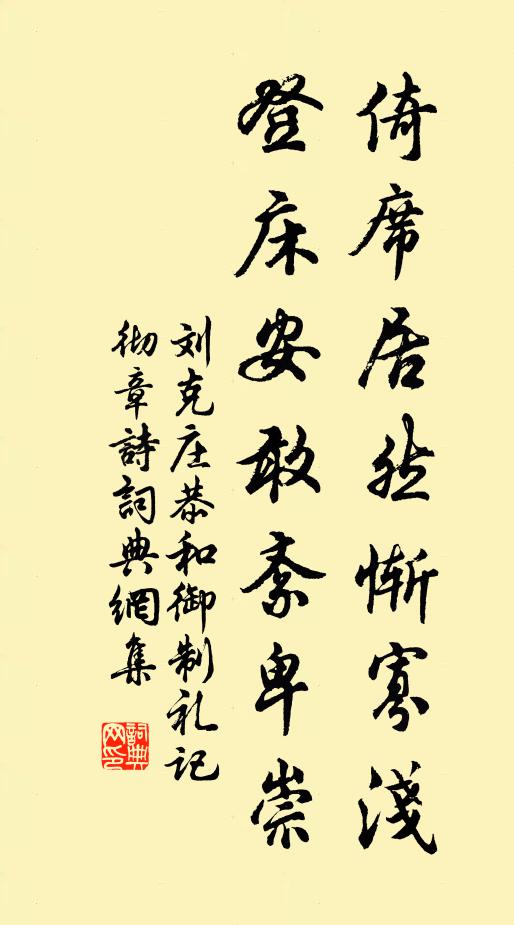 倚席居然惭寡浅
登床安敢紊卑崇
刘克庄恭和御制礼记
彻章詩詞典網集
詞典网印